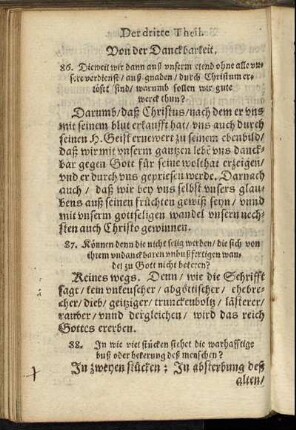 Der dritte Theil.
Von der Danckbarkeit.
86. Dieweil wir dann auß vnserm elend ohne alle vn-
sere verdienst / auß gnaden / durch Christum er-
löset sind / warumb sollen wir gute
werck thun?
Darumb / daß Christus / nach dem er vns
mit seinem blut erkaufft hat / vns auch durch
seinen H. Geist ernewert zu seinem ebenbild /
daß wir mit vnserm gantzen lebē vns danck-
bar gegen Gott für seine wolthat erzeigen /
vnd er durch vns gepriesen werde. Darnach
auch / daß wir bey vns selbst vnsers glau-
bens auß seinen früchten gewiß seyn / vnnd
mit vnserm gottseligen wandel vnsern nech-
sten auch Christo gewinnen.
87. Können denn die nicht selig werden / die sich von
ihrem vndanckbaren vnbußfertigen wan-
del zu Gott nicht bekeren?
Keines wegs. Denn / wie die Schrifft
sagt / kein vnkeuscher / abgöttischer / ehebre-
cher / dieb / geitziger / trunckenboltz / lästerer /
rauber / vnnd dergleichen / wird das reich
Gottes ererben.
88. In wie viel stücken stehet die warhafftige
buß oder bekerung deß menschen?
In zweyen stücken: In absterbung deß
alten /